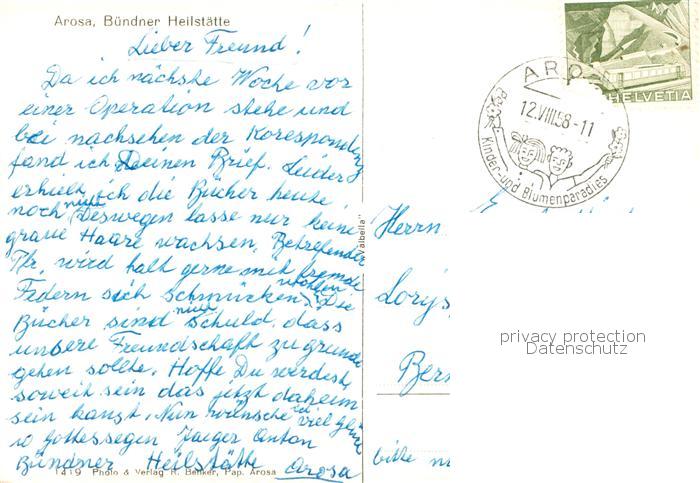 Arosa, Bündner Heilstätte
Lieber Freund!
Da ich nächste Woche vor
einer Operation stehe und
bei nachsehen der Korespondenz
fand ich Deinen Brief. Leider
erhielt ich die Bücher heute
noch nicht. Deswegen lasse nur keine
graue Haare wachsen. Betrefender
wird halt gerne mit fremde
Federn sich schmücken wollen. Die
Bücher sind nicht Schuld, dass
unsere Freundschaft zu grunde
gehen sollte. Hoffe Du werdest
soweit sein das jetzt daheim
sein kanst. Nun wünsche viel
Gottessegen Jaeger Anton
Bündner Heilstätte Arosa
1419 Photo & Verlag R. Benker, Pap. Arosa
HELVETIA
AROSA
12.VIII.58-11
Kinder-und Blumenparadies
Herrn
Lorys
Bern
bitte
privacy protection
Datenschutz